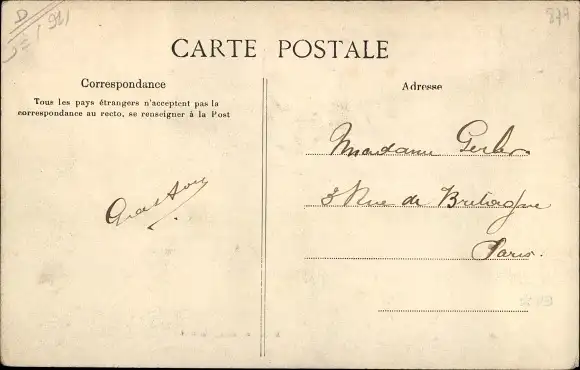 879
CARTE POSTALE
Correspondance
Tous les pays étrangers n'acceptent pas la
correspondance au recto, se renseigner à la Post
Adresse
Madame
3 Rue de Bretagne
Paris.